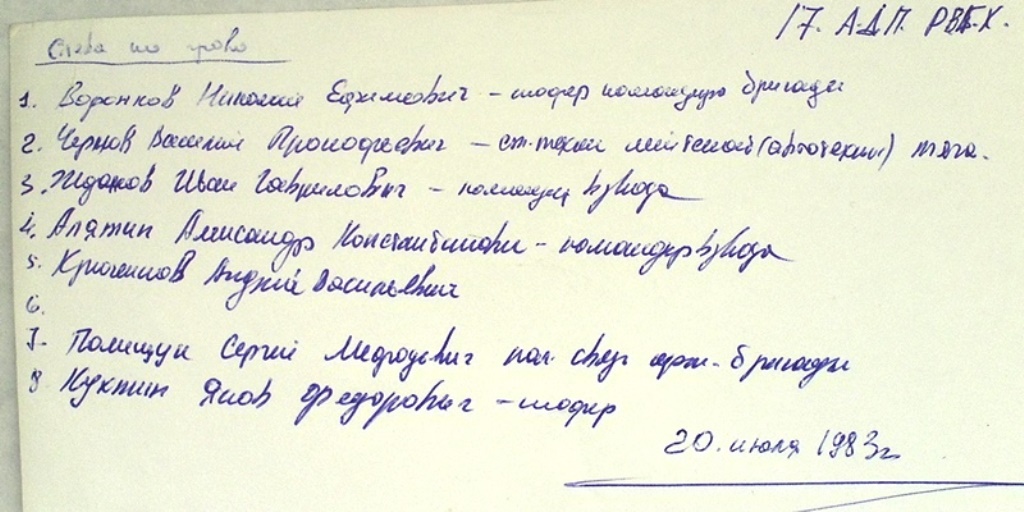 17. А.Д.П. РВГК.
Слева на право
1. Воронков Николай Ефимович - шофер командира бригады
2. Чернов Василий Прокофьевич - ст. техник лейтенант (автотехник) тяга.
3. Жданов Иван Гаврилович - командир взвода
4. Алятин Александр Константинович - командир взвода
5. Крюченков Андрей Васильевич
6.
7. Полищук Сергей Мефодьевич нач. связи бригады
8 Кухтин Яков Федорович - шофер
20. июля 1983 г.